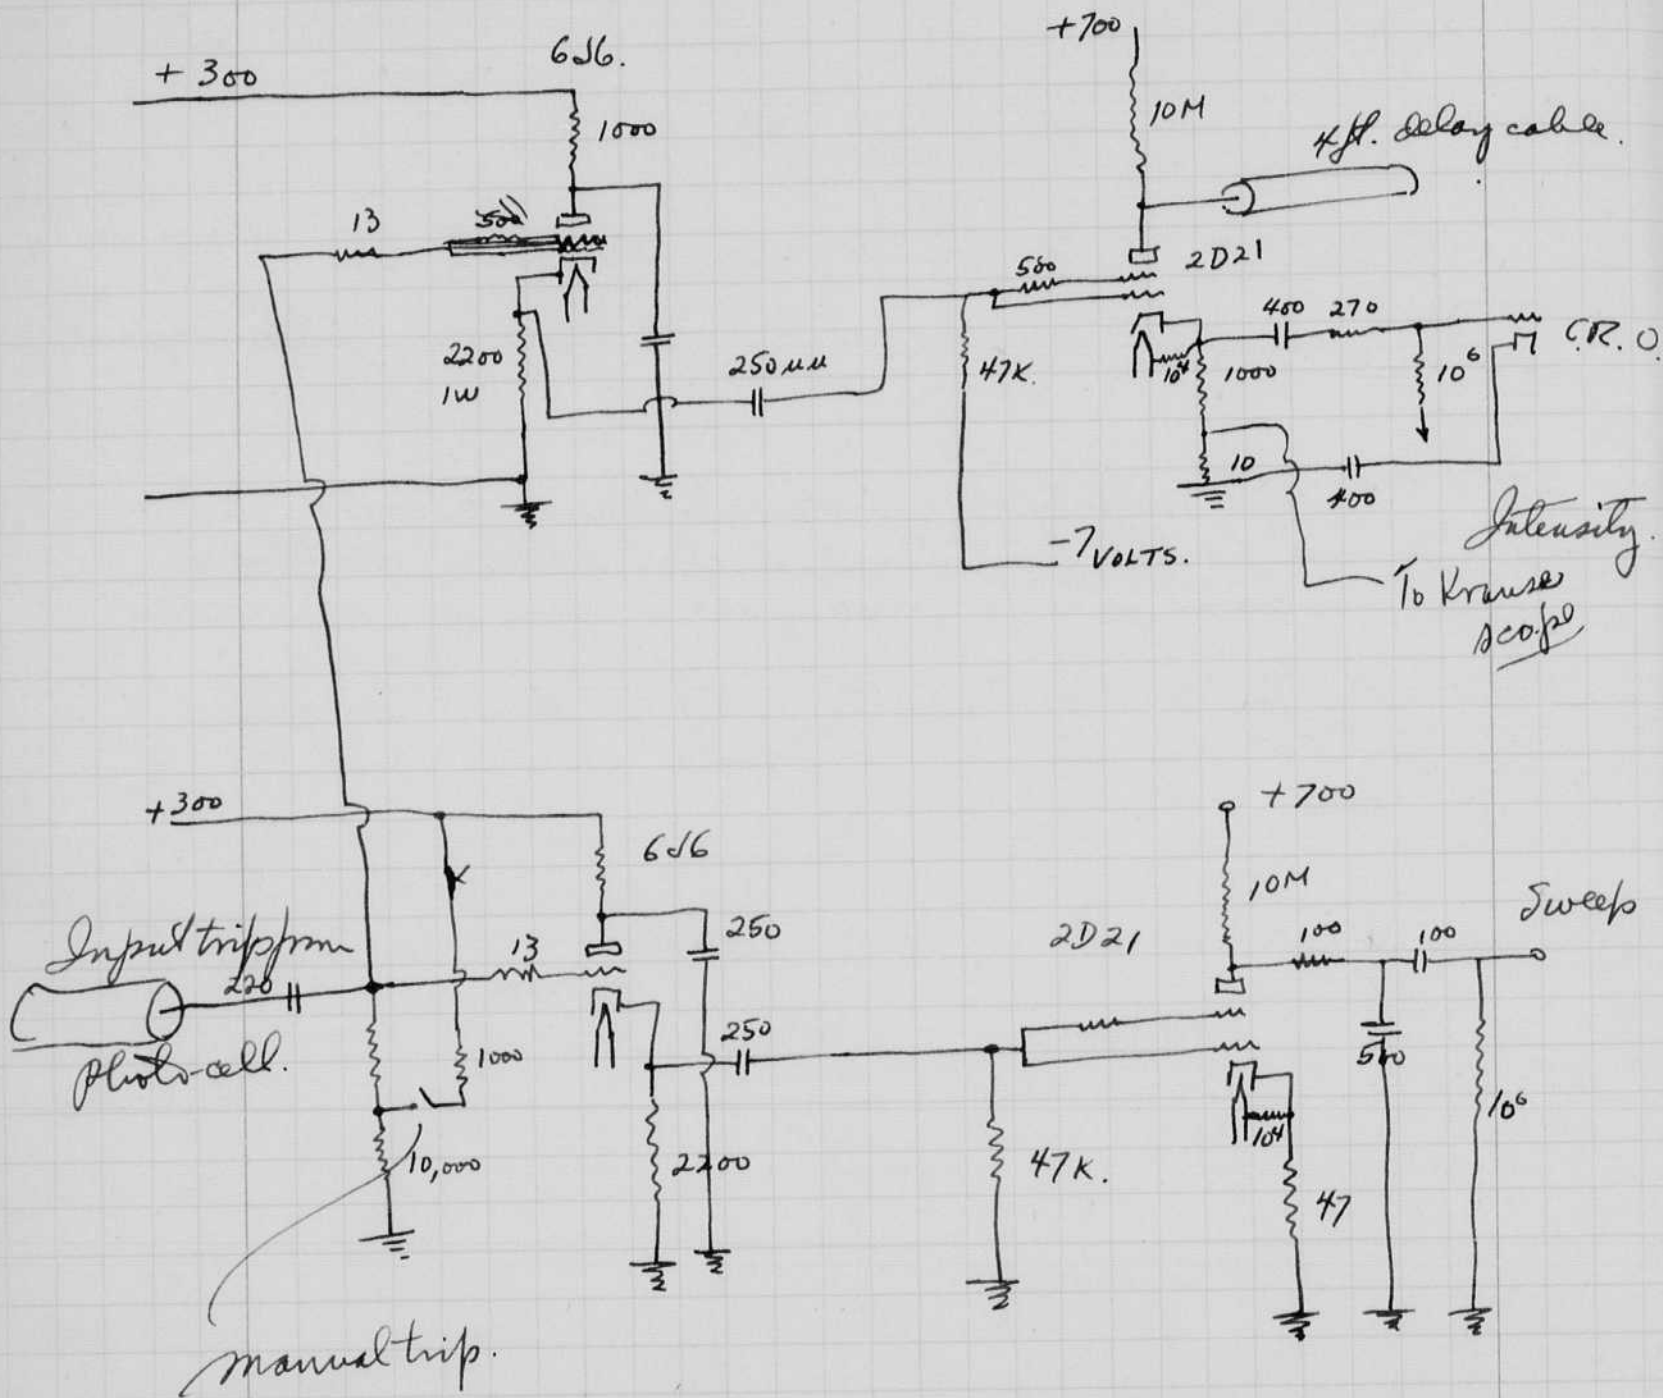 6J6.
+ 300
1000
13
500
2200
1W
250µµ
+700
10M
4 ft. delay cable.
2D21
500
47K.
400
270
C.R.O.
10⁴
1000
10⁶
10
400
Intensity.
-7 VOLTS.
To Krause
scope
+300
6J6
Input trip from
220
Photo-cell.
13
250
1000
250
10,000
2200
manual trip.
+700
10M
2D21
100
100
Sweep
500
10⁶
10⁴
47K.
47